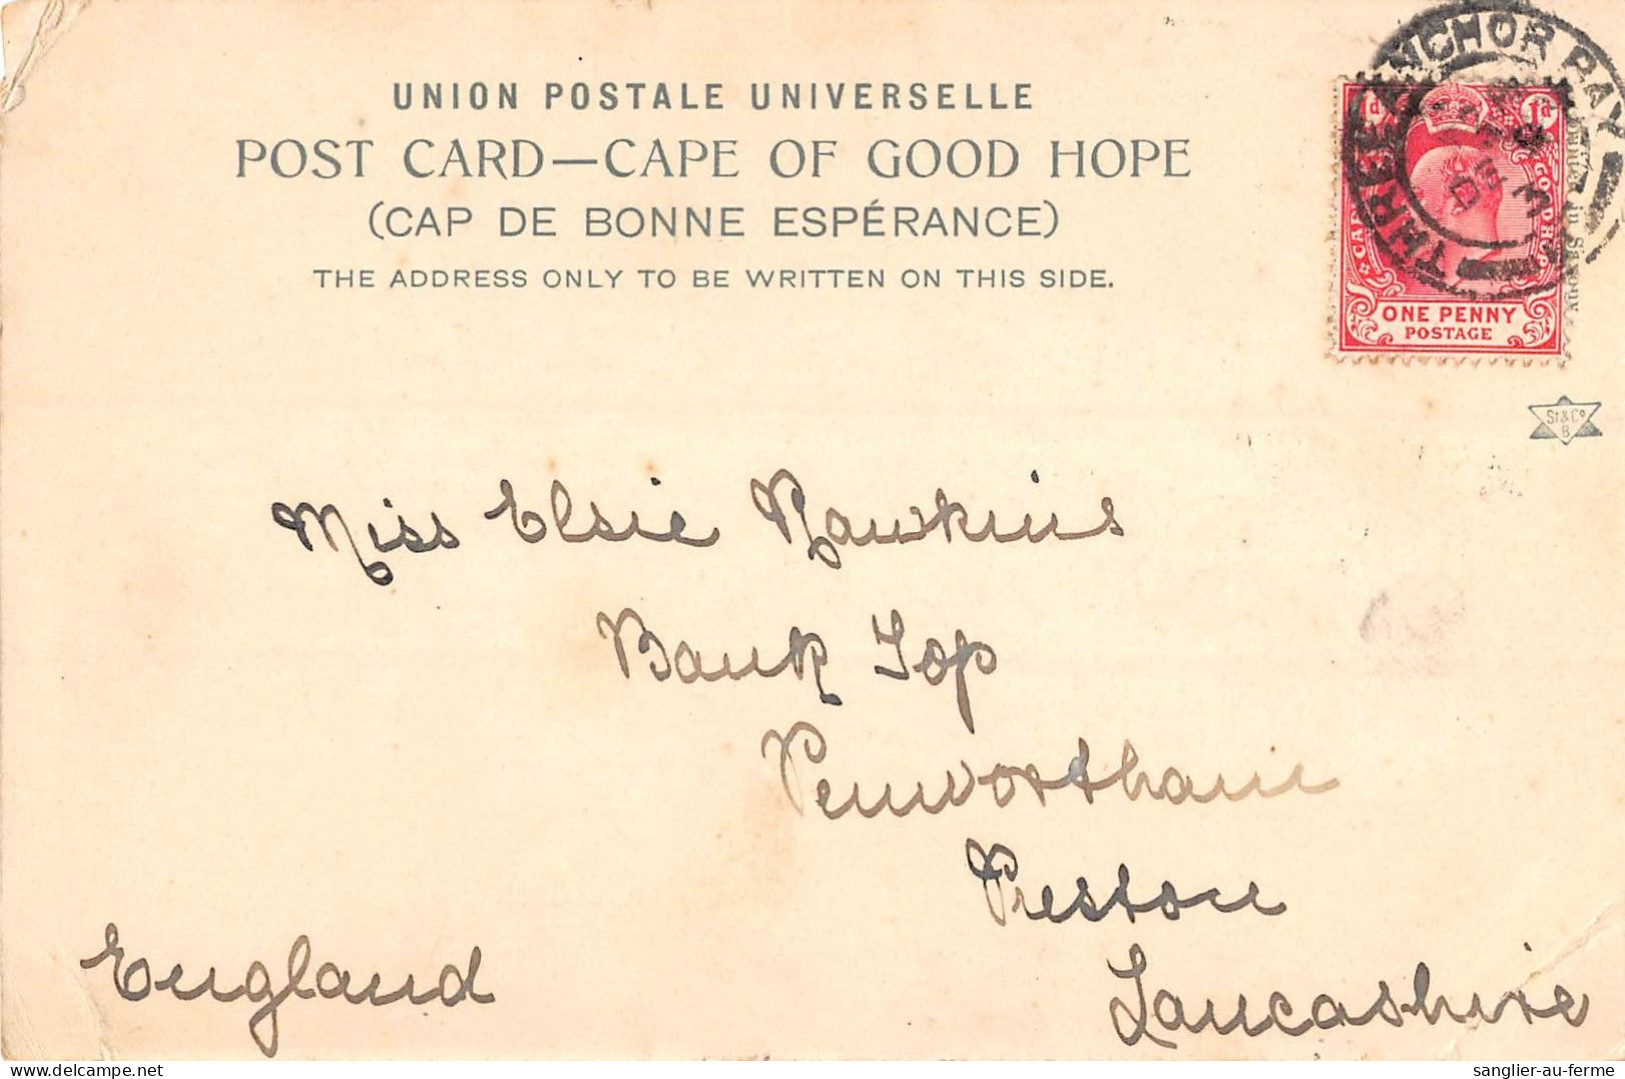 UNION POSTALE UNIVERSELLE
POST CARD—CAPE OF GOOD HOPE
(CAP DE BONNE ESPÉRANCE)
THE ADDRESS ONLY TO BE WRITTEN ON THIS SIDE.
THREE ANCHOR BAY
1d 1d
CAPE OF GOOD HOPE
ONE PENNY
POSTAGE
in Saxony
St & Co
B
Miss Elsie Hawkins
Bank Top
Penwortham
Preston
Lancashire
England
sanglier-au-ferme